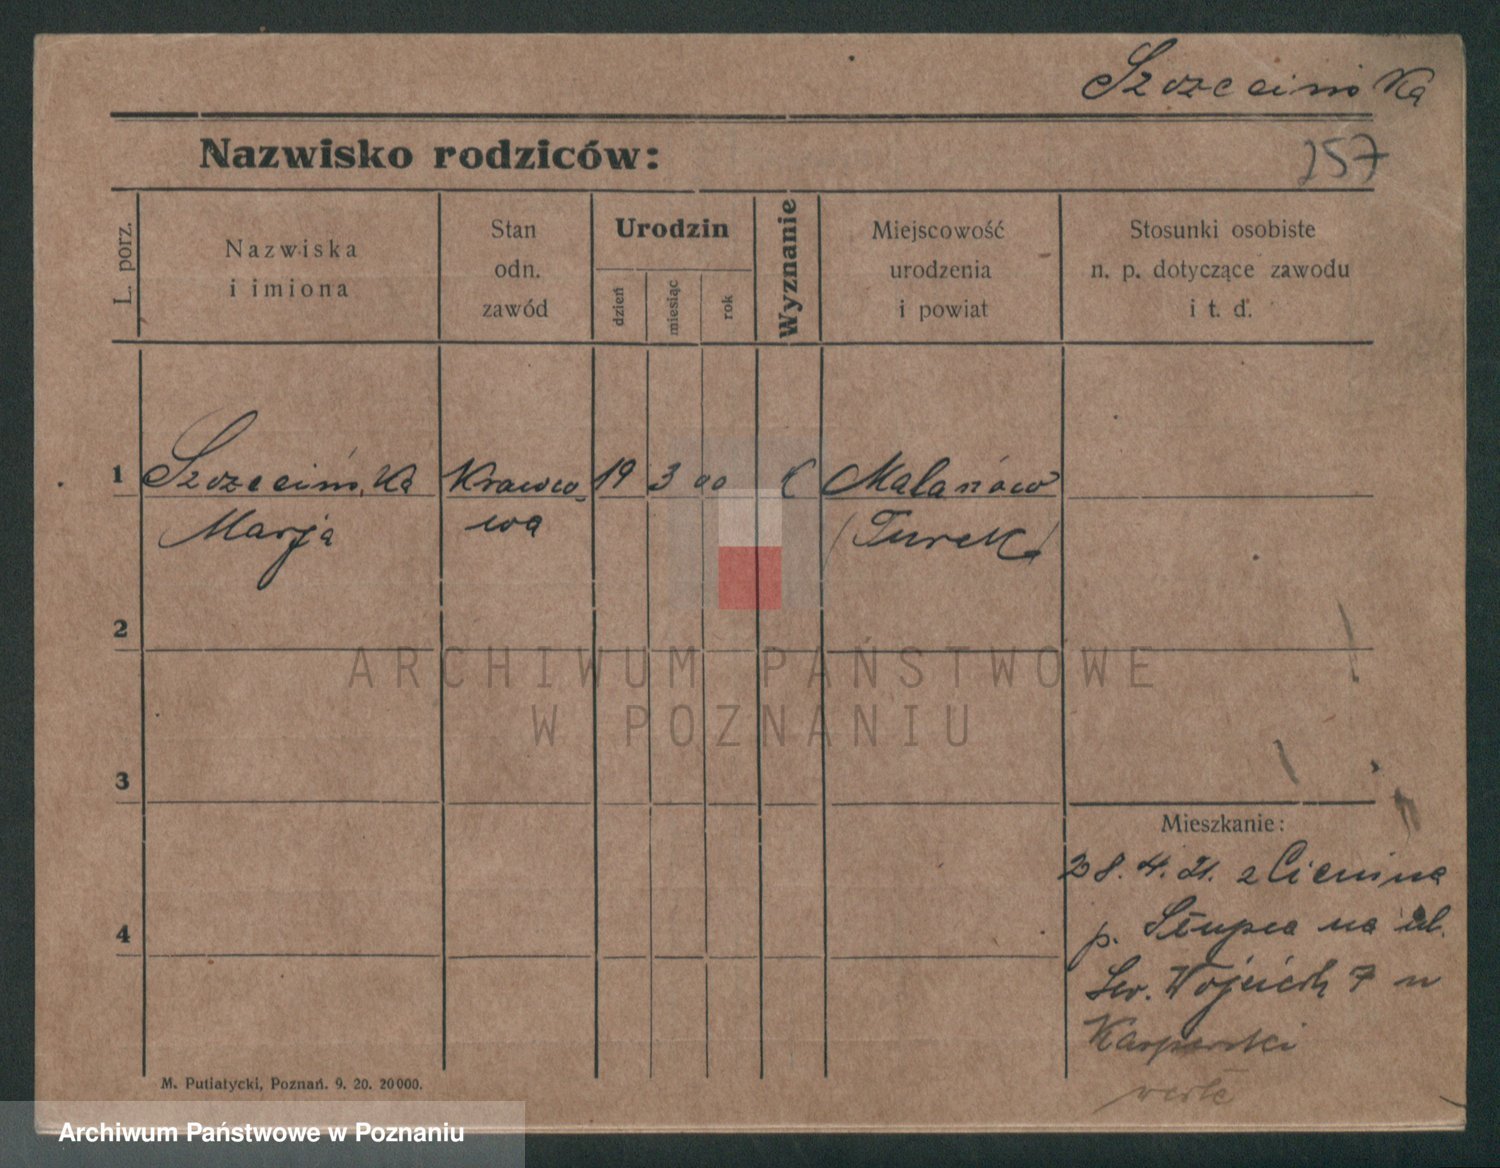 Szczecińska
257
Nazwisko rodziców:
L. porz.
Nazwiska
i imiona
Stan
odn.
zawód
Urodzin
dzień
miesiąc
rok
Wyznanie
Miejscowość
urodzenia
i powiat
Stosunki osobiste
n. p. dotyczące zawodu
i t. d.
1 Szczecińska Krawco- 19 3 00 K Malanów
Marja wa (Turek)
2
ARCHIWUM PAŃSTWOWE
W POZNANIU
3
Mieszkanie:
28. 4. 21. z Cienina
p. Słupca na ul.
4
Św. Wojciech 7 u
Kasperski
M. Putiatycki, Poznań. 9. 20. 20000.
Archiwum Państwowe w Poznaniu